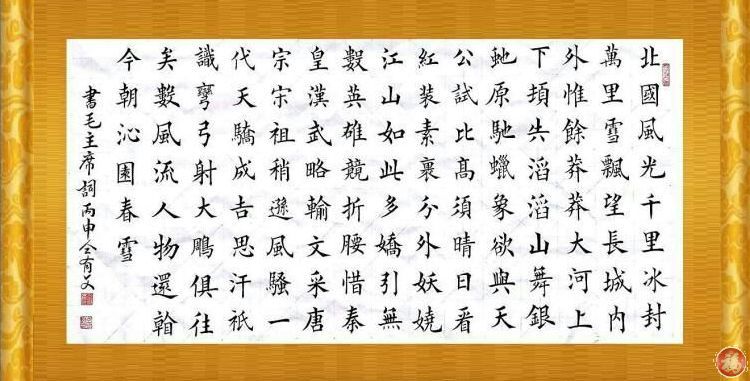 北國風光千里冰封
萬里雪飄望長城内
外惟餘莽莽大河上
下頓失滔滔山舞銀
虵原馳蠟象欲與天
公試比髙須晴日㸔
紅装素裹分外妖嬈
江山如此多嬌引無
數英雄競折腰惜秦
皇漢武略輸文采唐
宗宋祖稍遜風騷一
代天驕成吉思汗衹
識彎弓射大鵰俱往
矣數風流人物還㸔
今朝沁園春雪
書毛主席詞丙申
福